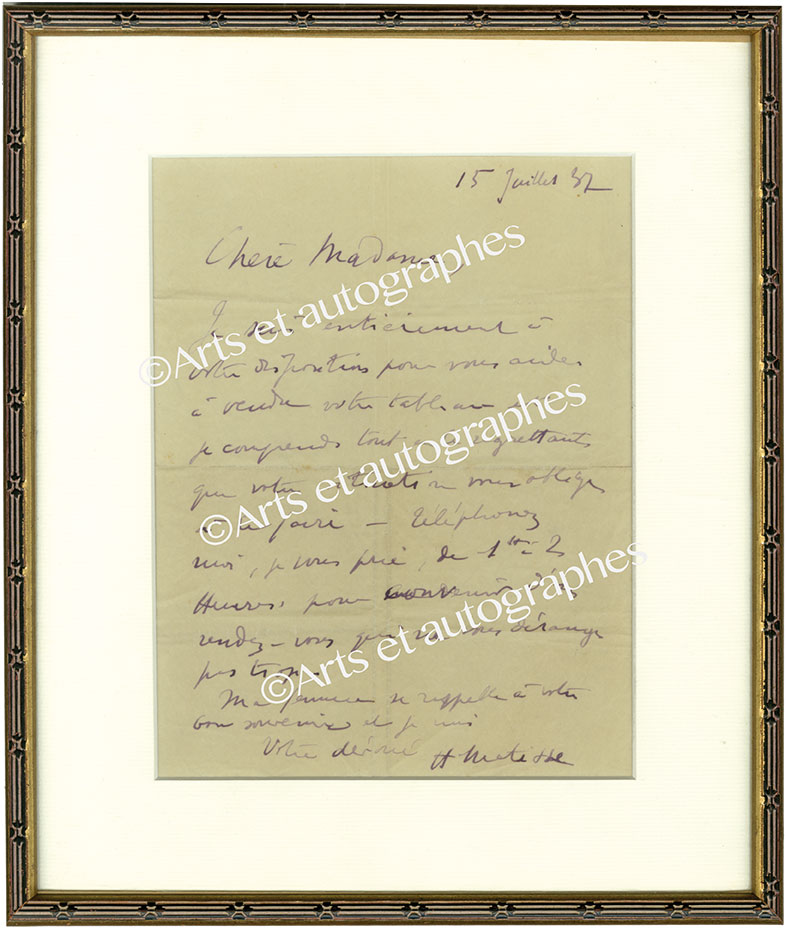 15 Juillet 37
Chère Madame,
Je suis entièrement à
votre disposition pour vous aider
à vendre votre tableau
je comprends tout
que votre situation vous oblige
faire — téléphonez
moi, je vous prie, de 1h à 2
Heures, pour convenir d'un
rendez-vous qui ne vous dérange
pas trop.
Ma femme se rappelle à votre
bon souvenir et je suis
Votre dévoué H Matisse
©Arts et autographes
©Arts et autographes
©Arts et autographes